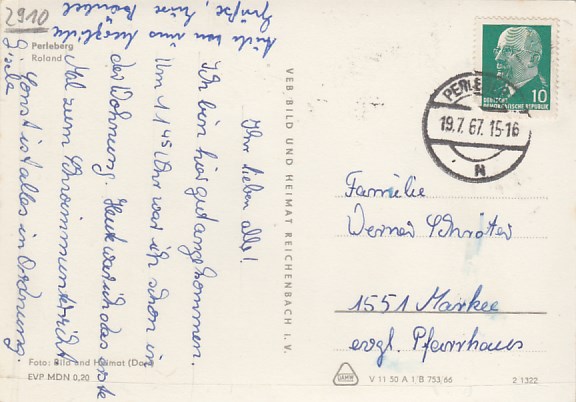 2910
Perleberg
Roland
Ihr lieben alle!
Ich bin hier gut angekommen.
Um 11 45 Uhr war ich schon in
der Wohnung. Heute war ich das erste
Mal zum Schwimmunterricht
. Sonst ist alles in Ordnung.
Seid von uns
Grüße, Eure
Gisela
VEB BILD UND HEIMAT REICHENBACH I. V.
DEUTSCHE
DEMOKRATISCHE REPUBLIK 10
PERLEBERG
19.7.67.15-16
N
Familie
Werner Schröter
1551 Markee
evgl. Pfarrhaus
Foto: Bild und Heimat
EVP MDN 0,20
V 11 50 A 1 B 753/66
2 1322